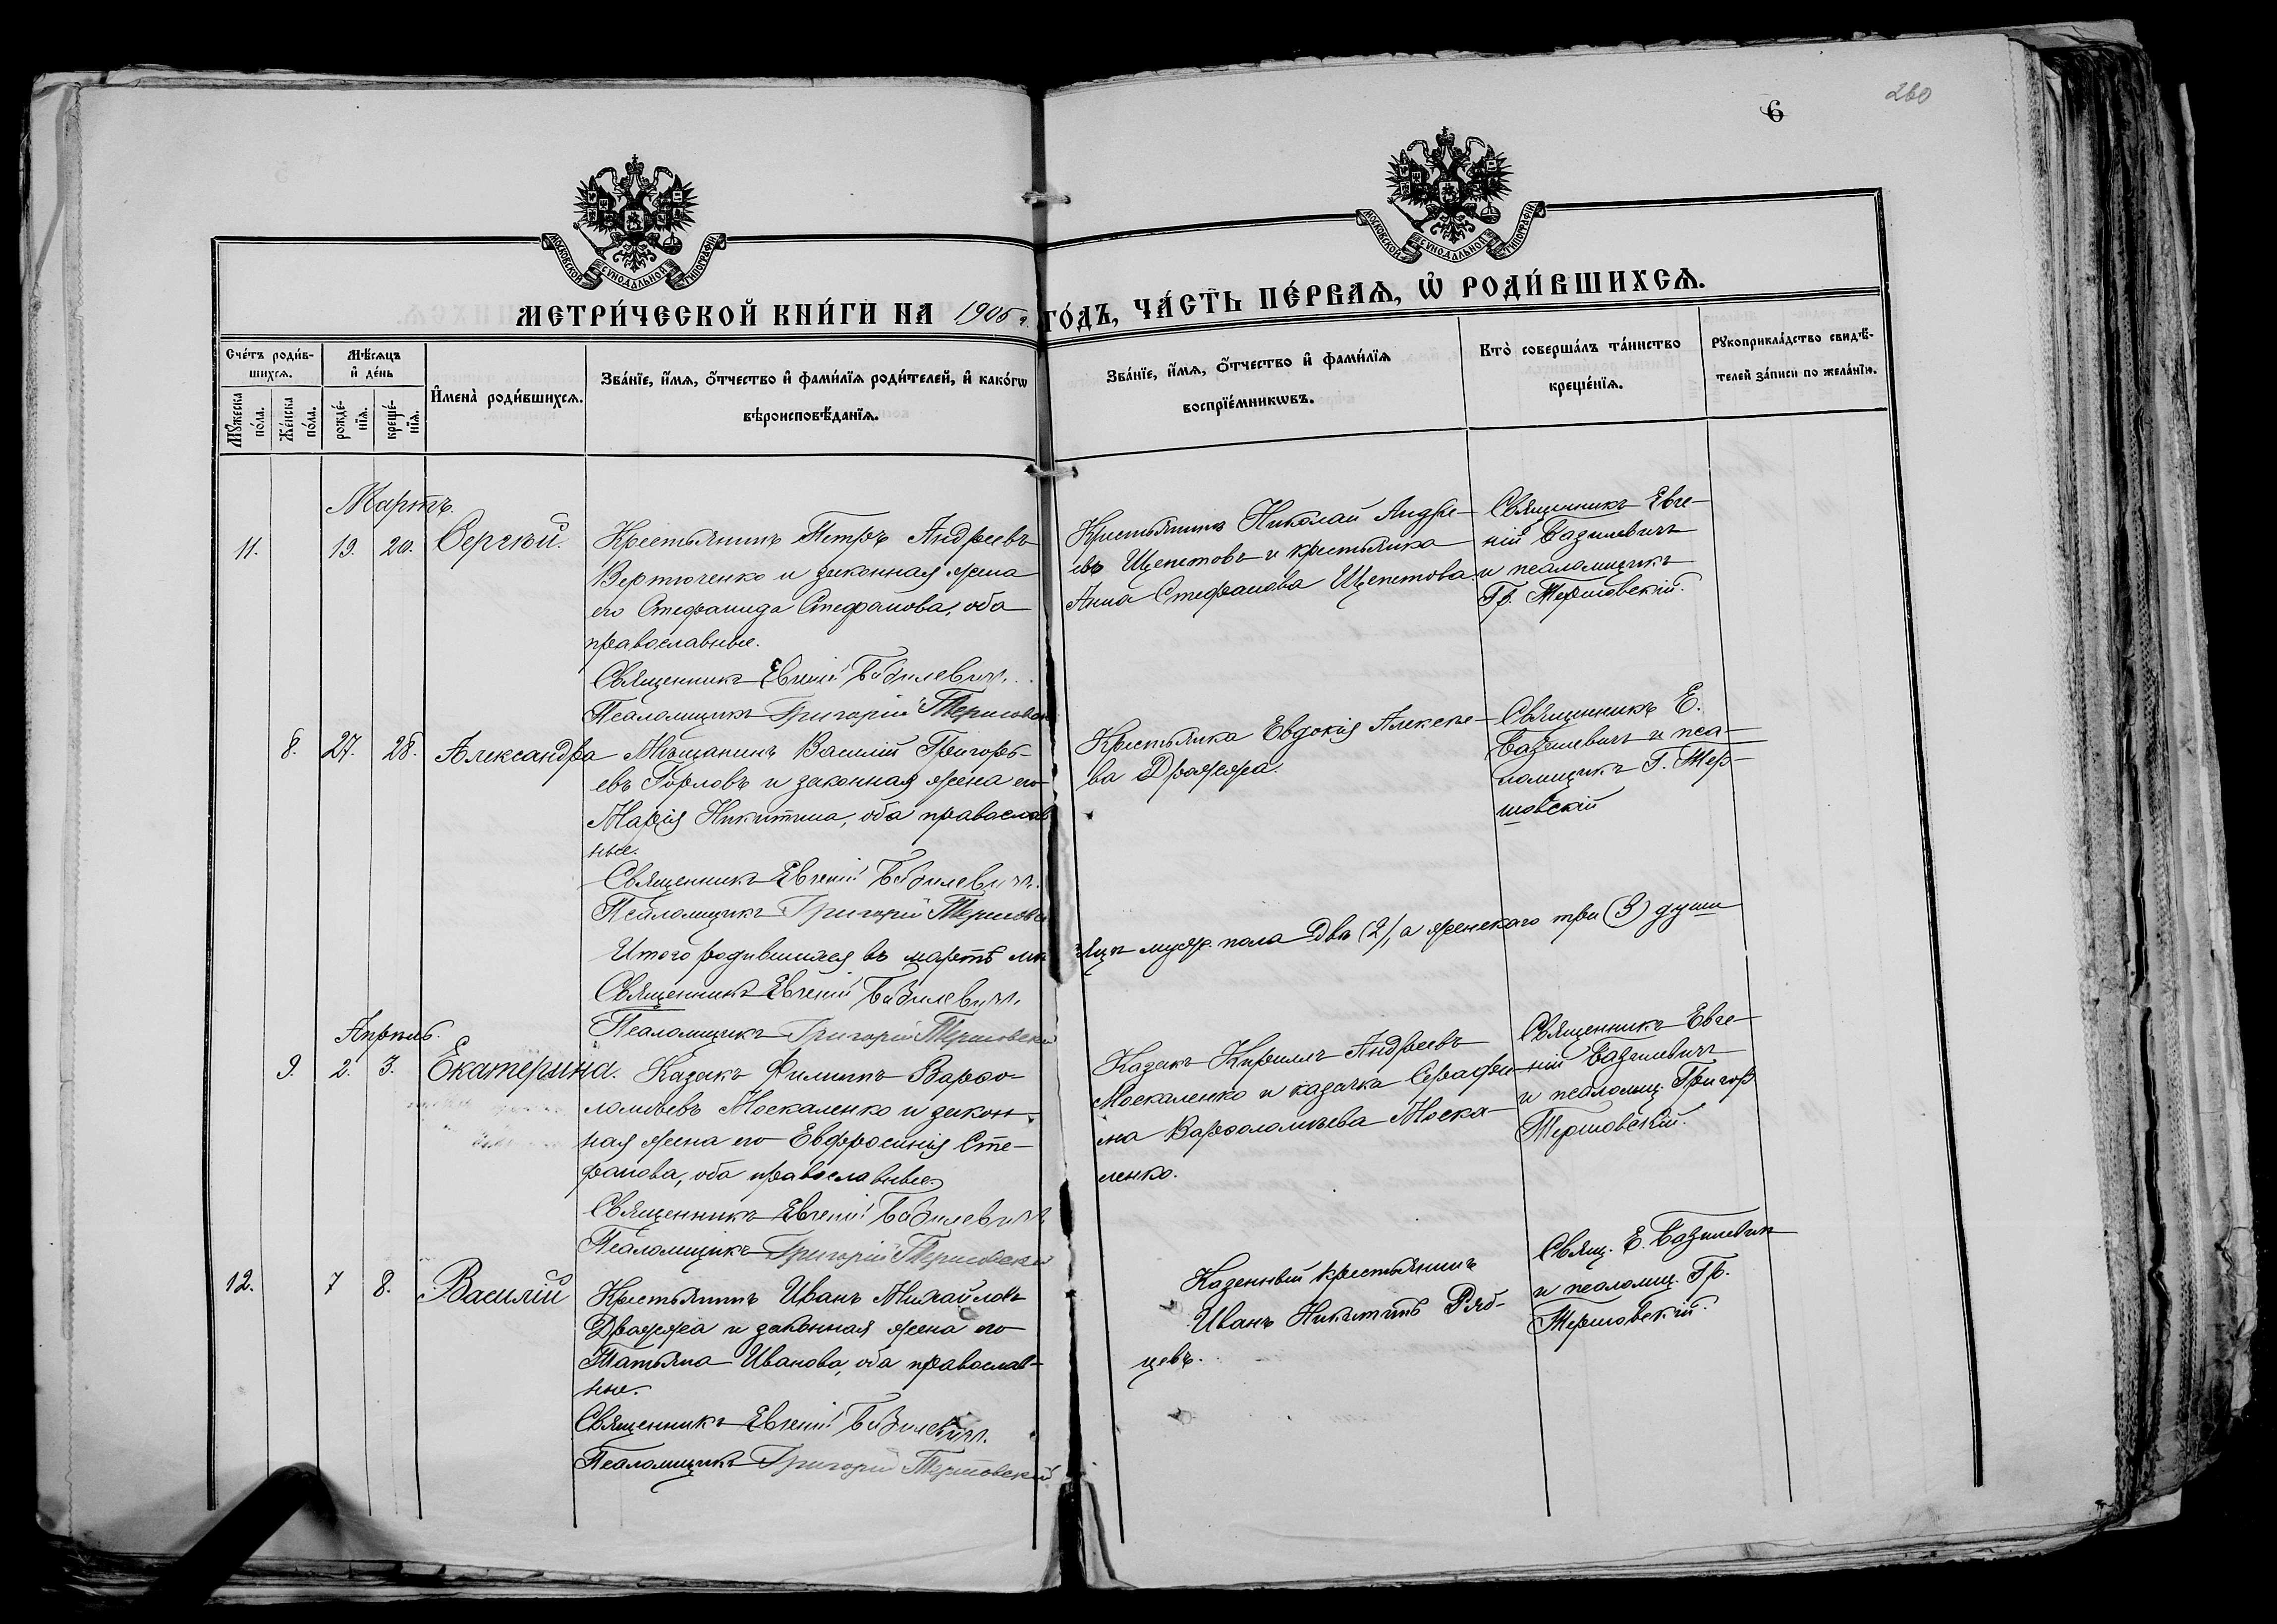 260
6
МОСКОВСКОЙ СѴНОДАЛЬНОЙ ТИПОГРАФІИ
МОСКОВСКОЙ СѴНОДАЛЬНОЙ ТИПОГРАФІИ
МЕТРИ́ЧЕСКОЙ КНИ́ГИ НА 1905 г. ГО́ДЪ, ЧА́СТЬ ПЕ́РВАѦ, Ѽ РОДИ́ВШИХСѦ.
Сче́тъ роди́в-
шихсѧ.
Мѣ́сѧцъ
и҆ де́нь
И҆мена̀ роди́вшихсѧ.
Зва́нїе, и҆́мѧ, ѻ҆́тчество и҆ фами́лїѧ роди́телей, и҆ како́гѡ
вѣроисповѣ́данїѧ.
Зва́нїе, и҆́мѧ, ѻ҆́тчество и҆ фами́лїѧ
воспрїе́мникѡвъ.
Кто̀ соверша́лъ та́инство
креще́нїѧ.
Рꙋкоприкла́дство свидѣ́-
телей за́писи по жела́нїю.
Мꙋ́жеска
по́ла.
Же́нска
по́ла.
рожде́-
нїѧ.
креще́-
нїѧ.
Мартъ.
11. 19. 20. Сергѣй.
Крестьянинъ Петръ Андреевъ
Вертюченко и законная жена
его Стефанида Стефанова, оба
православные.
Священникъ Евгеній Базилевичъ.
Псаломщикъ Григорій Термовск
Крестьянинъ Николай Андре-
евъ Щепетовъ и крестьянка
Анна Стефанова Щепетова.
Священникъ Евге-
ній Базилевичъ
и псаломщикъ
Гр. Термовскій.
8. 27. 28. Александра
Мѣщанинъ Василій Григорь-
евъ Горловъ и законная жена его
Марія Никитина, оба православ
ные.
Священникъ Евгеній Базилевичъ.
Псаломщикъ Григорій Термовск
Крестьянка Евдокія Алексѣе-
ва Дражжа.
Священникъ Е.
Базилевичъ и пса-
ломщикъ Г. Тер-
мовскій
Итого родившихся въ мартѣ мѣ
сяцѣ муж. пола два (2), а женскаго три (3) души
Священникъ Евгеній Базилевичъ.
Псаломщикъ Григорій Термовскій
Апрѣль.
9. 2. 3. Екатерина.
Казакъ Филиппъ Варфо-
ломѣевъ Москаленко и закон-
ная жена его Евфросинія Сте-
фанова, оба православные.
Священникъ Евгеній Базилевичъ
Псаломщикъ Григорій Термовскій
Казакъ Кириллъ Андреевъ
Москаленко и казачка Серафи-
ма Варфоломѣева Моска-
ленко.
Священникъ Евге-
ній Базилевичъ
и псаломщ. Григор
Термовскій.
12. 7 8. Василій
Крестьянинъ Иванъ Михайловъ
Дражжа и законная жена его
Татьяна Иванова, оба православ-
ные.
Священникъ Евгеній Базилевичъ.
Псаломщикъ Григорій Термовскій
Казенный крестьянинъ
Иванъ Никитинъ Ряб-
цевъ.
Свящ. Е. Базилевичъ
и псаломщ. Гр.
Термовскій.